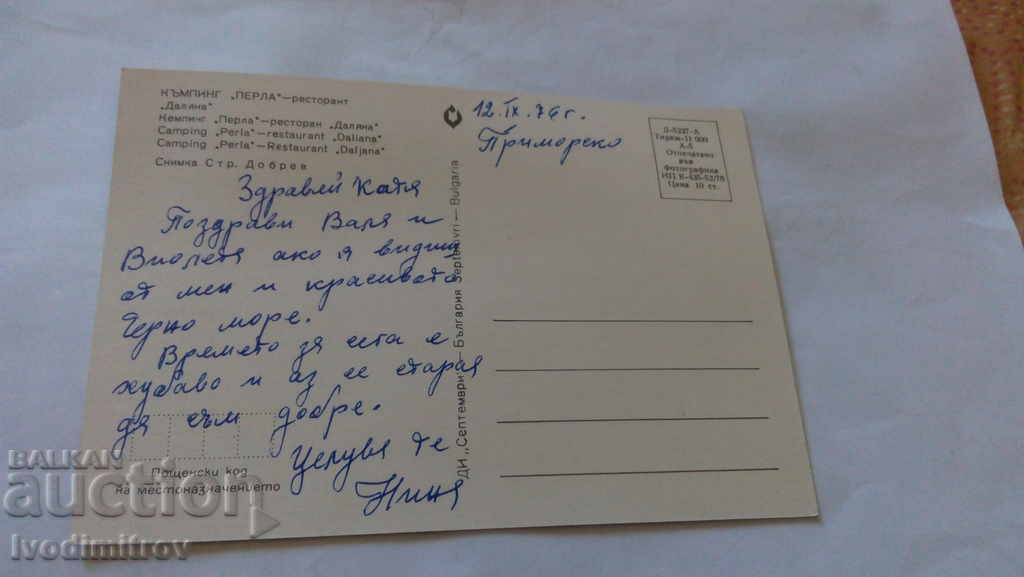 КЪМПИНГ „ПЕРЛА“—ресторант
„Даляна“
Кемпинг „Перла“—ресторан „Даляна“
Camping „Perla“—restaurant „Daliana“
Camping „Perla“—Restaurant „Daljana“
Снимка Стр. Добрев
Здравей Катя
Поздрави Валя и
Виолета ако я видиш
от мен и красивото
Черно море.
Времето за сега е
хубаво и аз се старая
да съм добре.
Целува те
Нина
Пощенски код
на местоназначението
ДИ „Септември“—България Septemvri—Bulgaria
12.IX.76 г.
Приморско
Д-5237-А
Тираж 11 000
X-5
Отпечатано
във
Фотографика
Цена 10 ст.
BALKAN
auction
Ivodimitrov